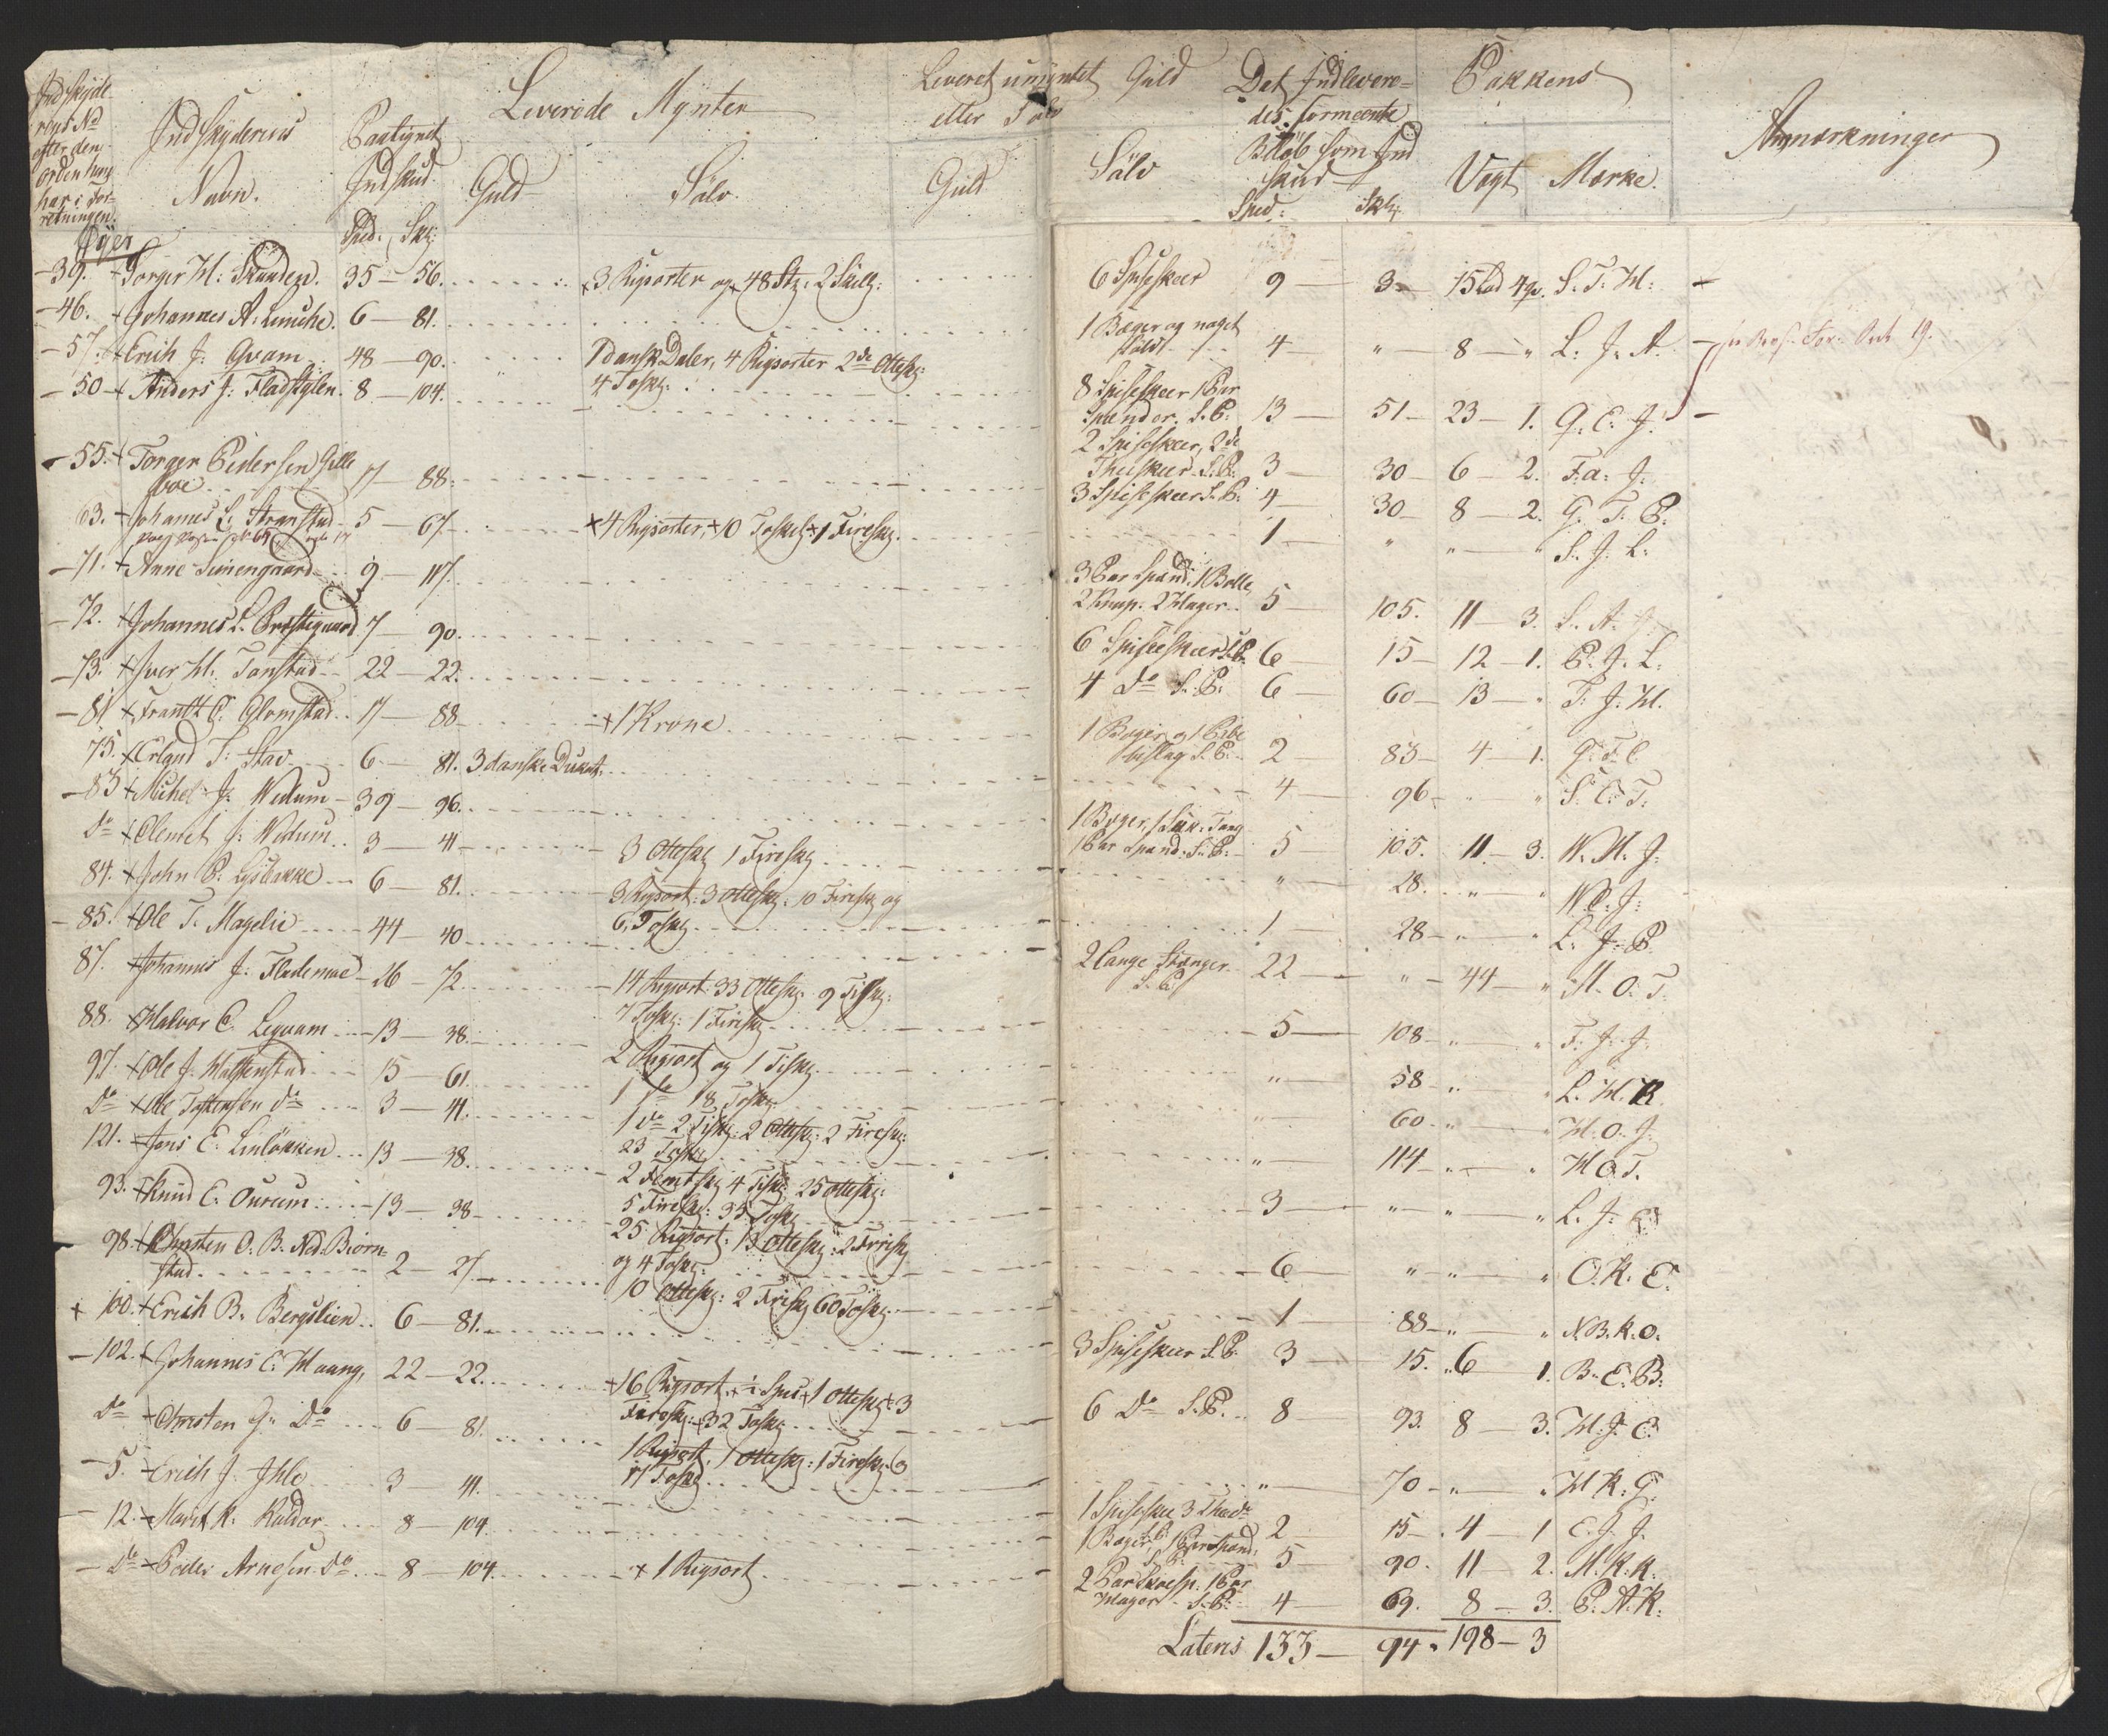 Indskyde
rens No
efter den
Orden hung
har i For-
retningen.
Indskyderens
Navn.
Paalignet
Indskud.
Spd: Sk:
Leverede Mynter
Guld
Sölv.
Leveret umyntet Guld
eller Sölv
Guld
Sölv
Det Indlevere-
des formeente
Belöb som Ind
skud
Spd: Sk:
Pakkens
Vægt Mærke.
Anmærkninger
Öÿer
39. Torger H: Skunden. 35 - 56. 3 Rigsorter og 48 Stz: 2 Skillg: 6 Spiseskeer 9 - 3 - 15 Lod 4 qv. S. T. H:
46. Johannes A: Lunche. 6 - 81. 1 Bæger og noget Sölv 4 - " - 8 - " L: J: A.
57. Erich J: Qvam 48 - 90. 1 dansk Daler, 4 Rigsorter 2de Ottesk: 4 Tosk: 8 Spiseskeer 1 Par Spænder. S. P: 13 - 51 - 23 - 1. Q. E. J.
50 Anders J: Fladstylen. 8 - 104. 2 Spiseskeer, 2de Theeskeer S. P: 3 - 30 - 6 - 2. F. a: J.
55. Torger Pedersen Gille boe 17 - 88. 3 Spiseskeer S. P: 4 - 30 - 8 - 2. G. T. P.
63. Johannes L: Stranstad 5 - 67. 4 Rigsorter, 10 Toskel 1 Firesk. 1 - " - " - " S. J. L:
71. Anne Simengaard 9 - 117. 3 Par Spænd: 1 Bolle, 2 Knap. 2 Mager 5 - 105. 11 - 3. S. A.
72. Johannes L. Præstegaard 7 - 90. 6 Spiseskeer S. P. 6 - 15 - 12 - 1. P. J. L:
73. Iver H. Tonstad 22 - 22. 4 Do S. P: 6 - 60 - 13 - " T. J. H.
81 Frantz C. Glomstad 17 - 88 1 Krone 1 Bæger og 1 Pibe beslag S. P. 2 - 83 - 4 - 1. G. F. C
75. Erland T: Stav 6 - 81. 3 danske Dukat. 4 - 96 - " - " S. E. T:
83 Michel J: Wedum 39 - 96. 1 Bæger, 1 Suk: Tang 1 Par Spænd: S. P: 5 - 105. 11 - 3. W. M. J:
Do Clemet J: Wedum 3 - 41 3 Ottesk 1 Firesk " - 28. " - " W. C. J:
84. John P. Lysbakke 6 - 81. 3 Rigsort: 3 Ottesk. 10 Firesk og 6 Tosk 1 - 28 - " - " L. J. P.
85. Ole T. Mageli 44 - 40 2 lange Stænger S. P. 22 - " - 44 - " M. O. T:
87. Johannes J: Flademoe 26 - 72. 14 Rigsort 33 Ottesk: 9 Tisk: 7 Tosk: 1 Firesk 5 - 108 - " - " F. J. J.
88. Halvor C. Legvam 13 - 38. 2 Rigsort og 1 Tisk. " - 58 - " - " L. H.
97. Ole J. Halstenstad 15 - 61. 1 Do 18 Tosk " - 60. - " - " H. O. J.
Do Ole Tostensen Do 3 - 41. 1 Do 2 Tisk: 2 Ottesk: 2 Firesk: 23 Tosk " - 114 - " - " H. O. T.
121. Jens E. Linlökken 13 - 38. 2 Femtsk 4 Tisk: 25 Ottesk: 5 Firesk: 35 Tosk 3 - " - " - " L. J. E.
93. Knud E. Ourum 13 - 38 25 Rigsort: 13 Ottesk: 2 Firesk og 4 Tosk: 6 - " - " - " O. K. E.
98. Christen O. B. Ned. Biörn- stad 2 - 27. 10 Ottesk: 2 Firesk 60 Tosk: 1 - 88 - " - " N. B. K. O.
100. Erich B. Bergslien 6 - 81. 3 Spiseskeer S. P. 3 - 15. " 6 - 1. B. E. B:
102. Johannes C. Maang, 22 - 22. 16 Rigsort, ½ Spes, 1 Ottesk: 3 Firesk: 32 Tosk 6 Do S. P. 8 - 93. 8 - 3. M. J. C.
Do Christen G. Do 6 - 81. 1 Rigsort, 1 Ottesk: 1 Firesk: 17 Tosk " - 70 - " - " M K. G.
5. Erich J. Ihle 3 - 41. 1 Spiseskee 3 Theedo 2 - 15 - 4 - 1 E. J. J.
12. Marit K. Kaldor 8 - 104. 1 Bæger, 1 Par Spænd: S. P. 5 - 90. 11 - 2. M. K. K.
Do Peder Arnesen Do 8 - 104. 1 Rigsort 2 Par Skoesp: 1 Par Mager S. P. 4 - 69. 8 - 3. P. A. K:
Lateris 133 - 94. 198 - 3